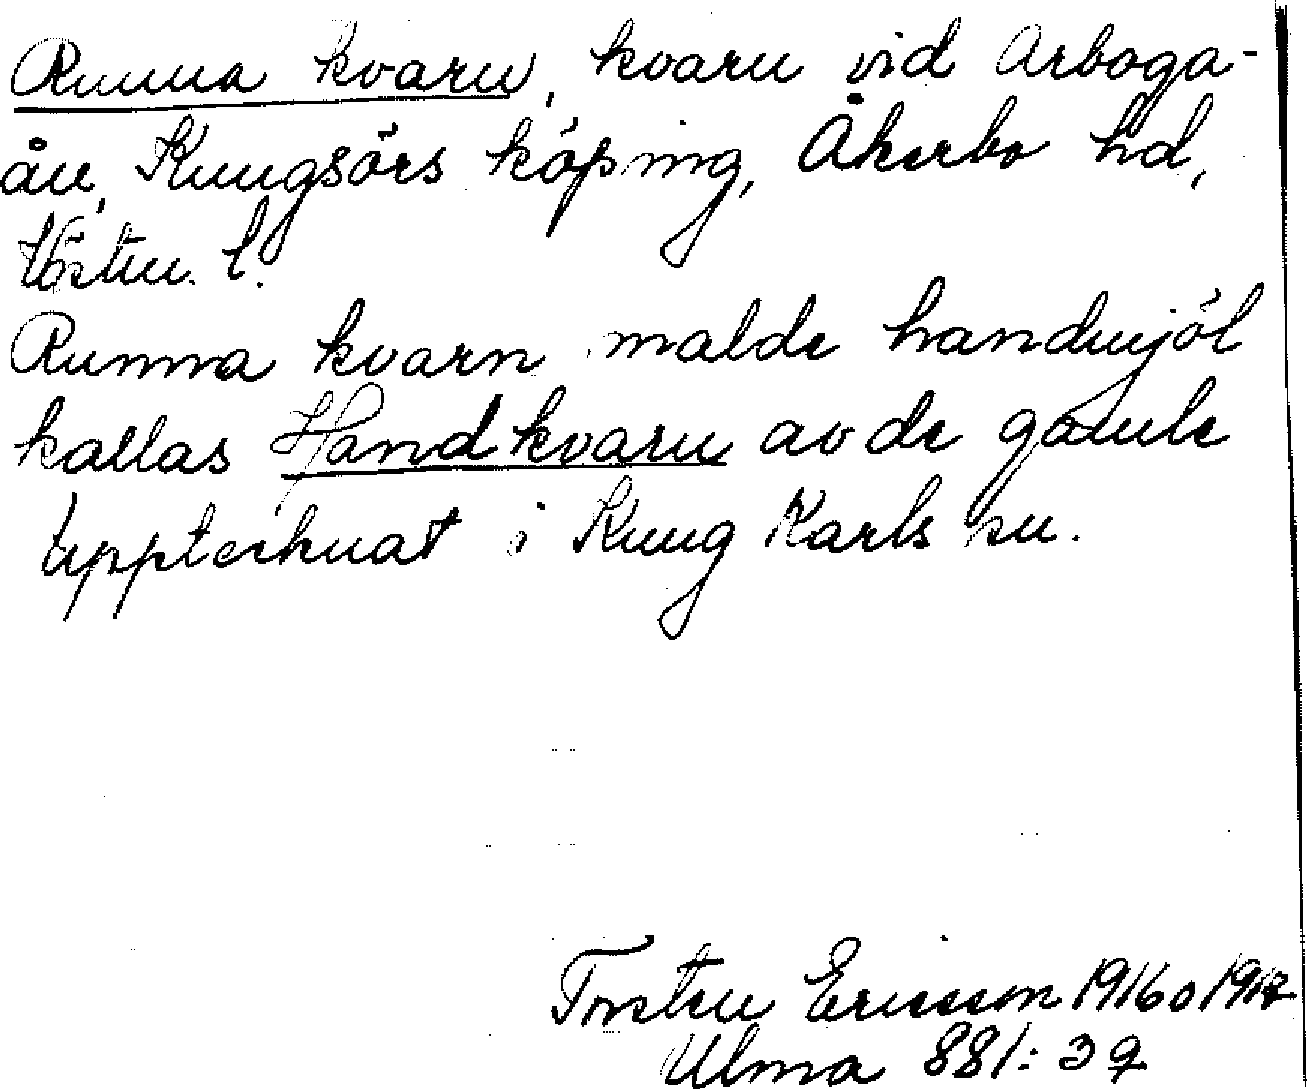 Runna kvarn, kvarn vid Arboga-
ån, Kungsörs köping, Åkerbo hd,
Västm. l.
Runna kvarn malde handmjöl
kallas Handkvarn av de gamle
Upptecknat i Kung Karls sn.
Torsten Ericsson 1916 o 1917
Ulma 881: 39